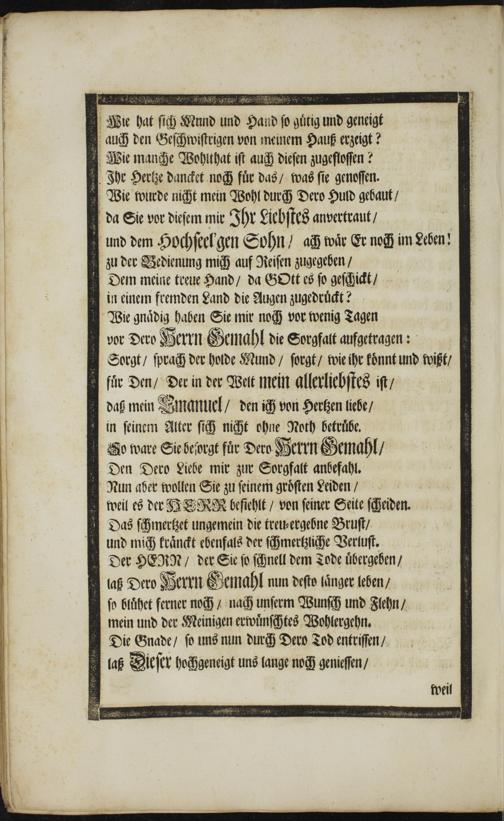 Wie hat sich Mund und Hand so gütig und geneigt
auch den Geschwistrigen von meinem Hauß erzeigt?
Wie manche Wohlthat ist auch diesen zugeflossen?
Ihr Hertze dancket noch für das/ was sie genossen.
Wie wurde nicht mein Wohl durch Dero Huld gebaut/
da Sie vor diesem mir Ihr Liebstes anvertraut/
und dem Hochseel'gen Sohn/ ach wär Er noch im Leben!
zu der Bedienung mich auf Reisen zugegeben/
Dem meine treue Hand/ da GOtt es so geschickt/
in einem fremden Land die Augen zugedrückt?
Wie gnädig haben Sie mir noch vor wenig Tagen
vor Dero Herrn Gemahl die Sorgfalt aufgetragen:
Sorgt/ sprach der holde Mund/ sorgt/ wie ihr könnt und wißt/
für Den/ Der in der Welt mein allerliebstes ist/
daß mein Emanuel/ den ich von Hertzen liebe/
in seinem Alter sich nicht ohne Noth betrübe.
So ware Sie besorgt für Dero Herrn Gemahl/
Den Dero Liebe mir zur Sorgfalt anbefahl.
Nun aber wollen Sie zu seinem grösten Leiden/
weil es der HERR befiehlt/ von seiner Seite scheiden.
Das schmertzet ungemein die treu-ergebne Brust/
und mich kränckt ebenfals der schmertzliche Verlust.
Der HERR/ der Sie so schnell dem Tode übergeben/
laß Dero Herrn Gemahl nun desto länger leben/
so blühet ferner noch/ nach unserm Wunsch und Flehn/
mein und der Meinigen erwünschtes Wohlergehn.
Die Gnade/ so uns nun durch Dero Tod entrissen/
laß Dieser hochgeneigt uns lange noch geniessen/
weil